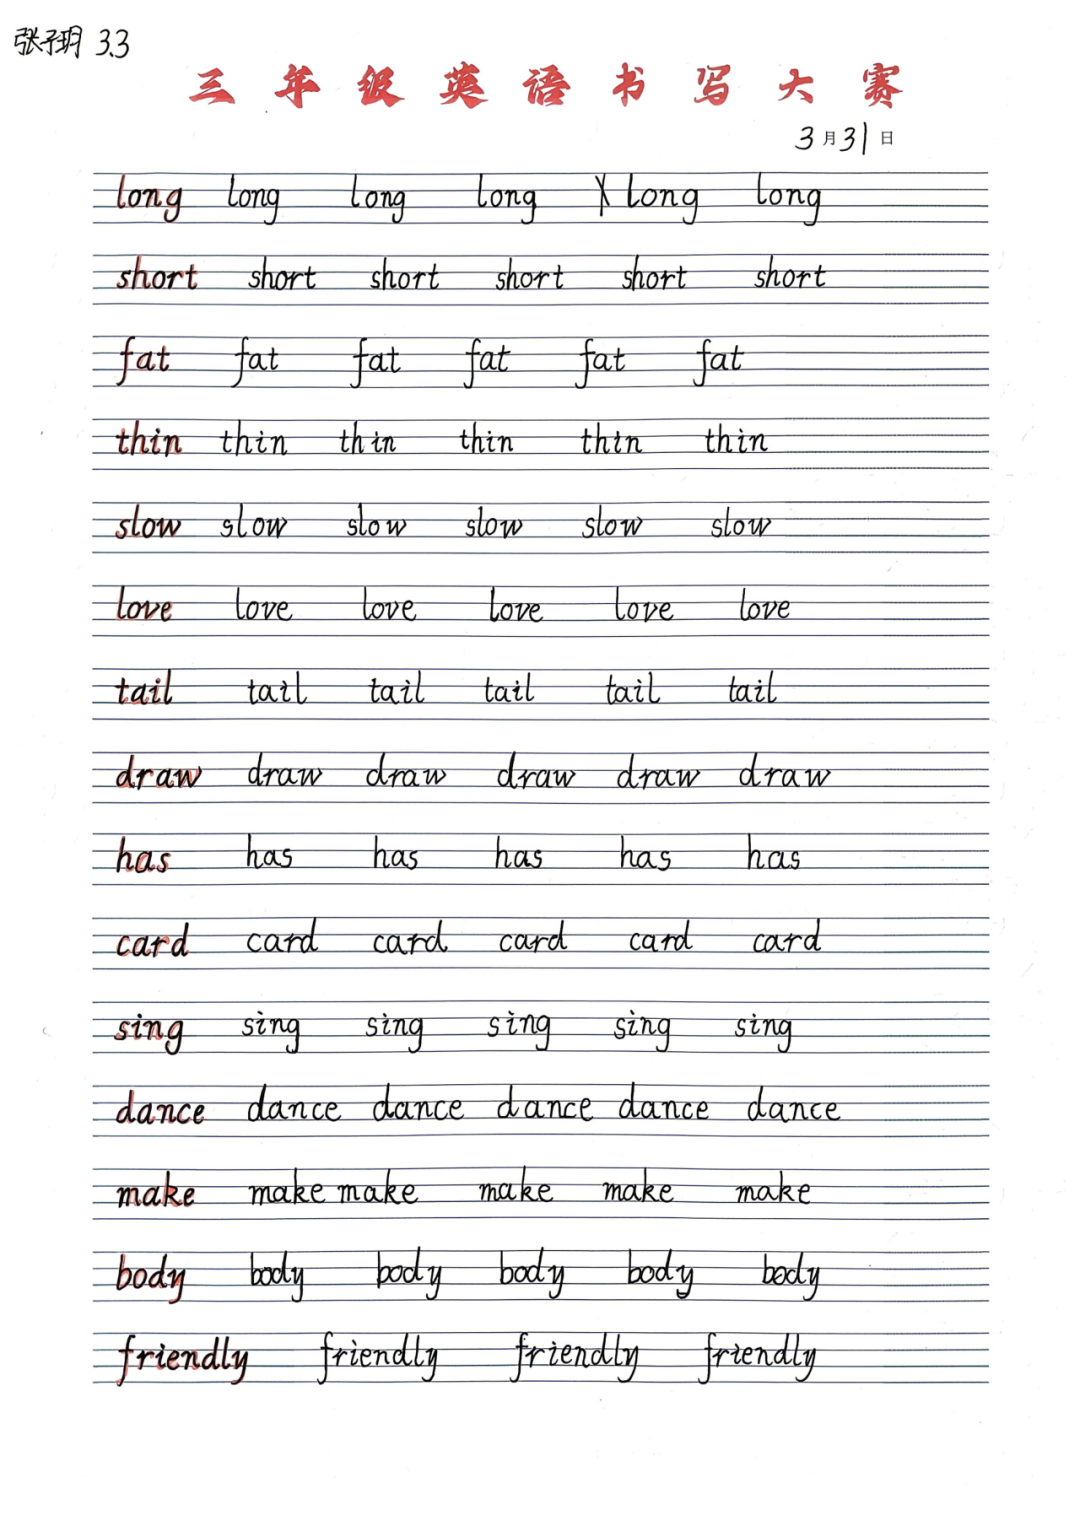 张子玥 3.3
三年级英语书写大赛
3月31日
long long long long long long
short short short short short short
fat fat fat fat fat fat
thin thin thin thin thin thin
slow slow slow slow slow slow
love love love love love love
tail tail tail tail tail tail
draw draw draw draw draw draw
has has has has has has
card card card card card card
sing sing sing sing sing sing
dance dance dance dance dance dance
make make make make make make
body body body body body body
friendly friendly friendly friendly